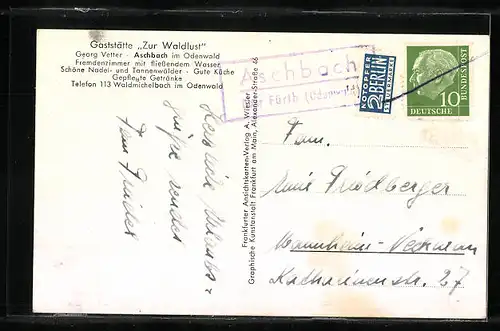 Gaststätte „Zur Waldlust"
Georg Vetter · Aschbach im Odenwald
Fremdenzimmer mit fließendem Wasser
Schöne Nadel- und Tannenwälder · Gute Küche
Gepflegte Getränke
Telefon 113 Waldmichelbach im Odenwald
Aschbach
Fürth (Odenwald)
NOTOPFER
2 BERLIN
STEUERMARKE
DEUTSCHE
BUNDESPOST
10
Frankfurter Ansichtskarten-Verlag A. Wiesler
Graphische Kunstanstalt Frankfurt am Main, Alexander-Straße 46
Herzliche Urlaubs-
grüße sendet
Fam.
Fam.
Friedberger
Mannheim-Neckarau
Katharinenstr. 27